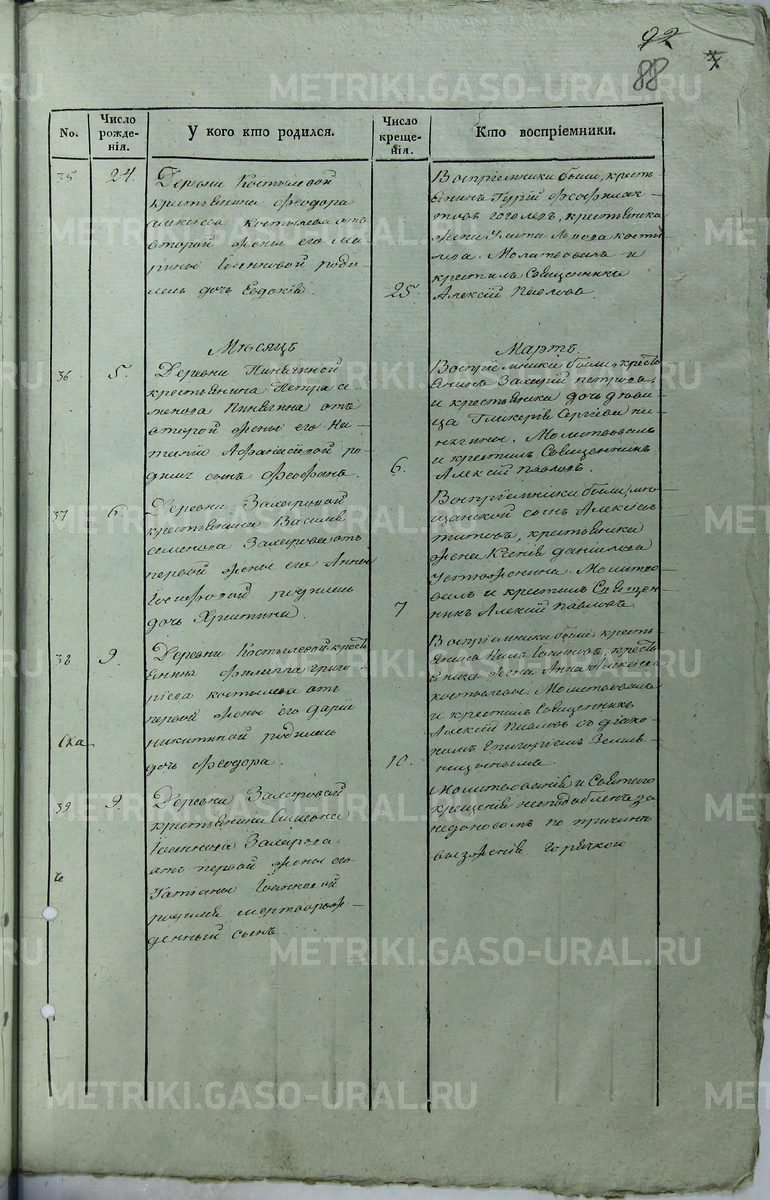 92
88
No.
Число рожде-нія.
У кого кто родился.
Число креще-нія.
Кто воспріемники.
35
24.
Деревни Костылевой
крестьянина Феодора
Костылева отъ
второй жены его Ма-
рины Іоанновой роди-
лась дочь Евдокія.
25.
Воспріемники были, кресть-
янинъ Гурій Феофилак-
товъ крестьянина
жена Улита Львова Косты
лева. Молитвовалъ и
крестилъ Священникъ
Алексій Павловъ
Мѣсяцъ
Мартъ
36
5.
Деревни Пинягиной
крестьянина Петра Се
менова Пинягина отъ
второй жены его На-
таліи Афанасіевой ро-
дился сынъ Феофанъ.
6.
Воспріемники были, кресть
янинъ Петровъ,
и крестьянина дочь дѣви
ца Гликерія Сергѣева Пи-
нягины. Молитвовалъ
и крестилъ Священникъ
Алексій Павловъ.
37
6.
Деревни Захаровой
крестьянина Василія
Семенова Захарова отъ
первой жены его Анны
Іосифовой родилась
дочь Христина.
7
Воспріемники были, мѣ-
щанской сынъ Алексій
Титовъ, крестьянина
жена Ксенія Данилова
Устюжанина. Молитво-
валъ и крестилъ Священ-
никъ Алексій Павловъ.
38
9.
Деревни Костылевой кресть
янина Филиппа Григо-
ріева Костылева отъ
первой жены его Дарьи
Никитиной родилась
дочь Феодора.
10.
Воспріемники были, кресть-
янинъ Іоанновъ, кресть
янина жена Анна Алексіева
Костылевы. Молитвовалъ
и крестилъ Священникъ
Алексій Павловъ съ діако-
номъ Григоріемъ Земля-
ницынымъ.
39
9.
Деревни Захаровой
крестьянина Симеона
Іоаннова Захарова
отъ первой жены его
Татіаны Іоанновой
родился мертворож-
денный сынъ.
Молитвованія и Святаго
крещенія неподобленъ за
недоносомъ по причинѣ
горячкою
METRIKI.GASO-URAL.RU